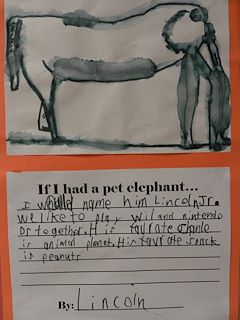 If I had a pet elephant...
I would name him Lincoln Jr.
We like to play Wii and nintendo
Ds together. His favrate chanle
is animal planet. His favrate snack
is peanuts
By: Lincoln